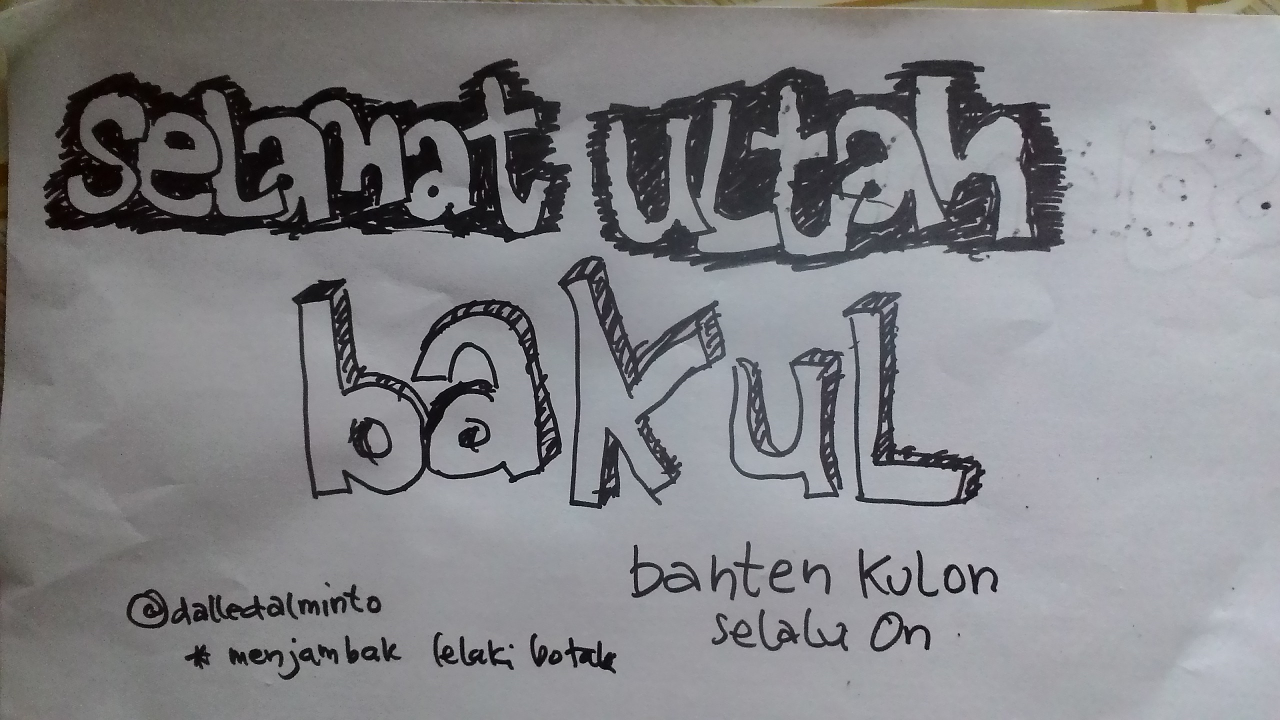 selamat ultah
bakuL
banten kulon
selalu On
@dalledalminto
* menjambak lelaki botak